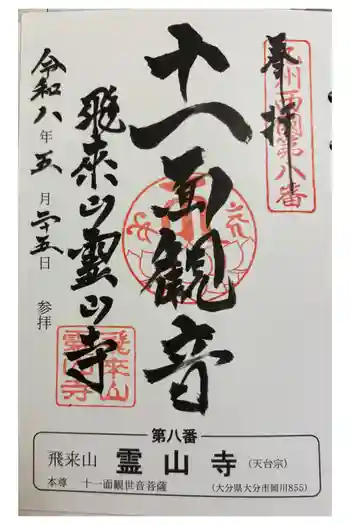 九州西國第八番
奉拝
十一面觀音
飛來山霊山寺
飛來山霊山寺
令和八年五月二十五日 参拝
第八番
飛来山 霊山寺 (天台宗)
本尊 十一面観世音菩薩 (大分県大分市岡川855)